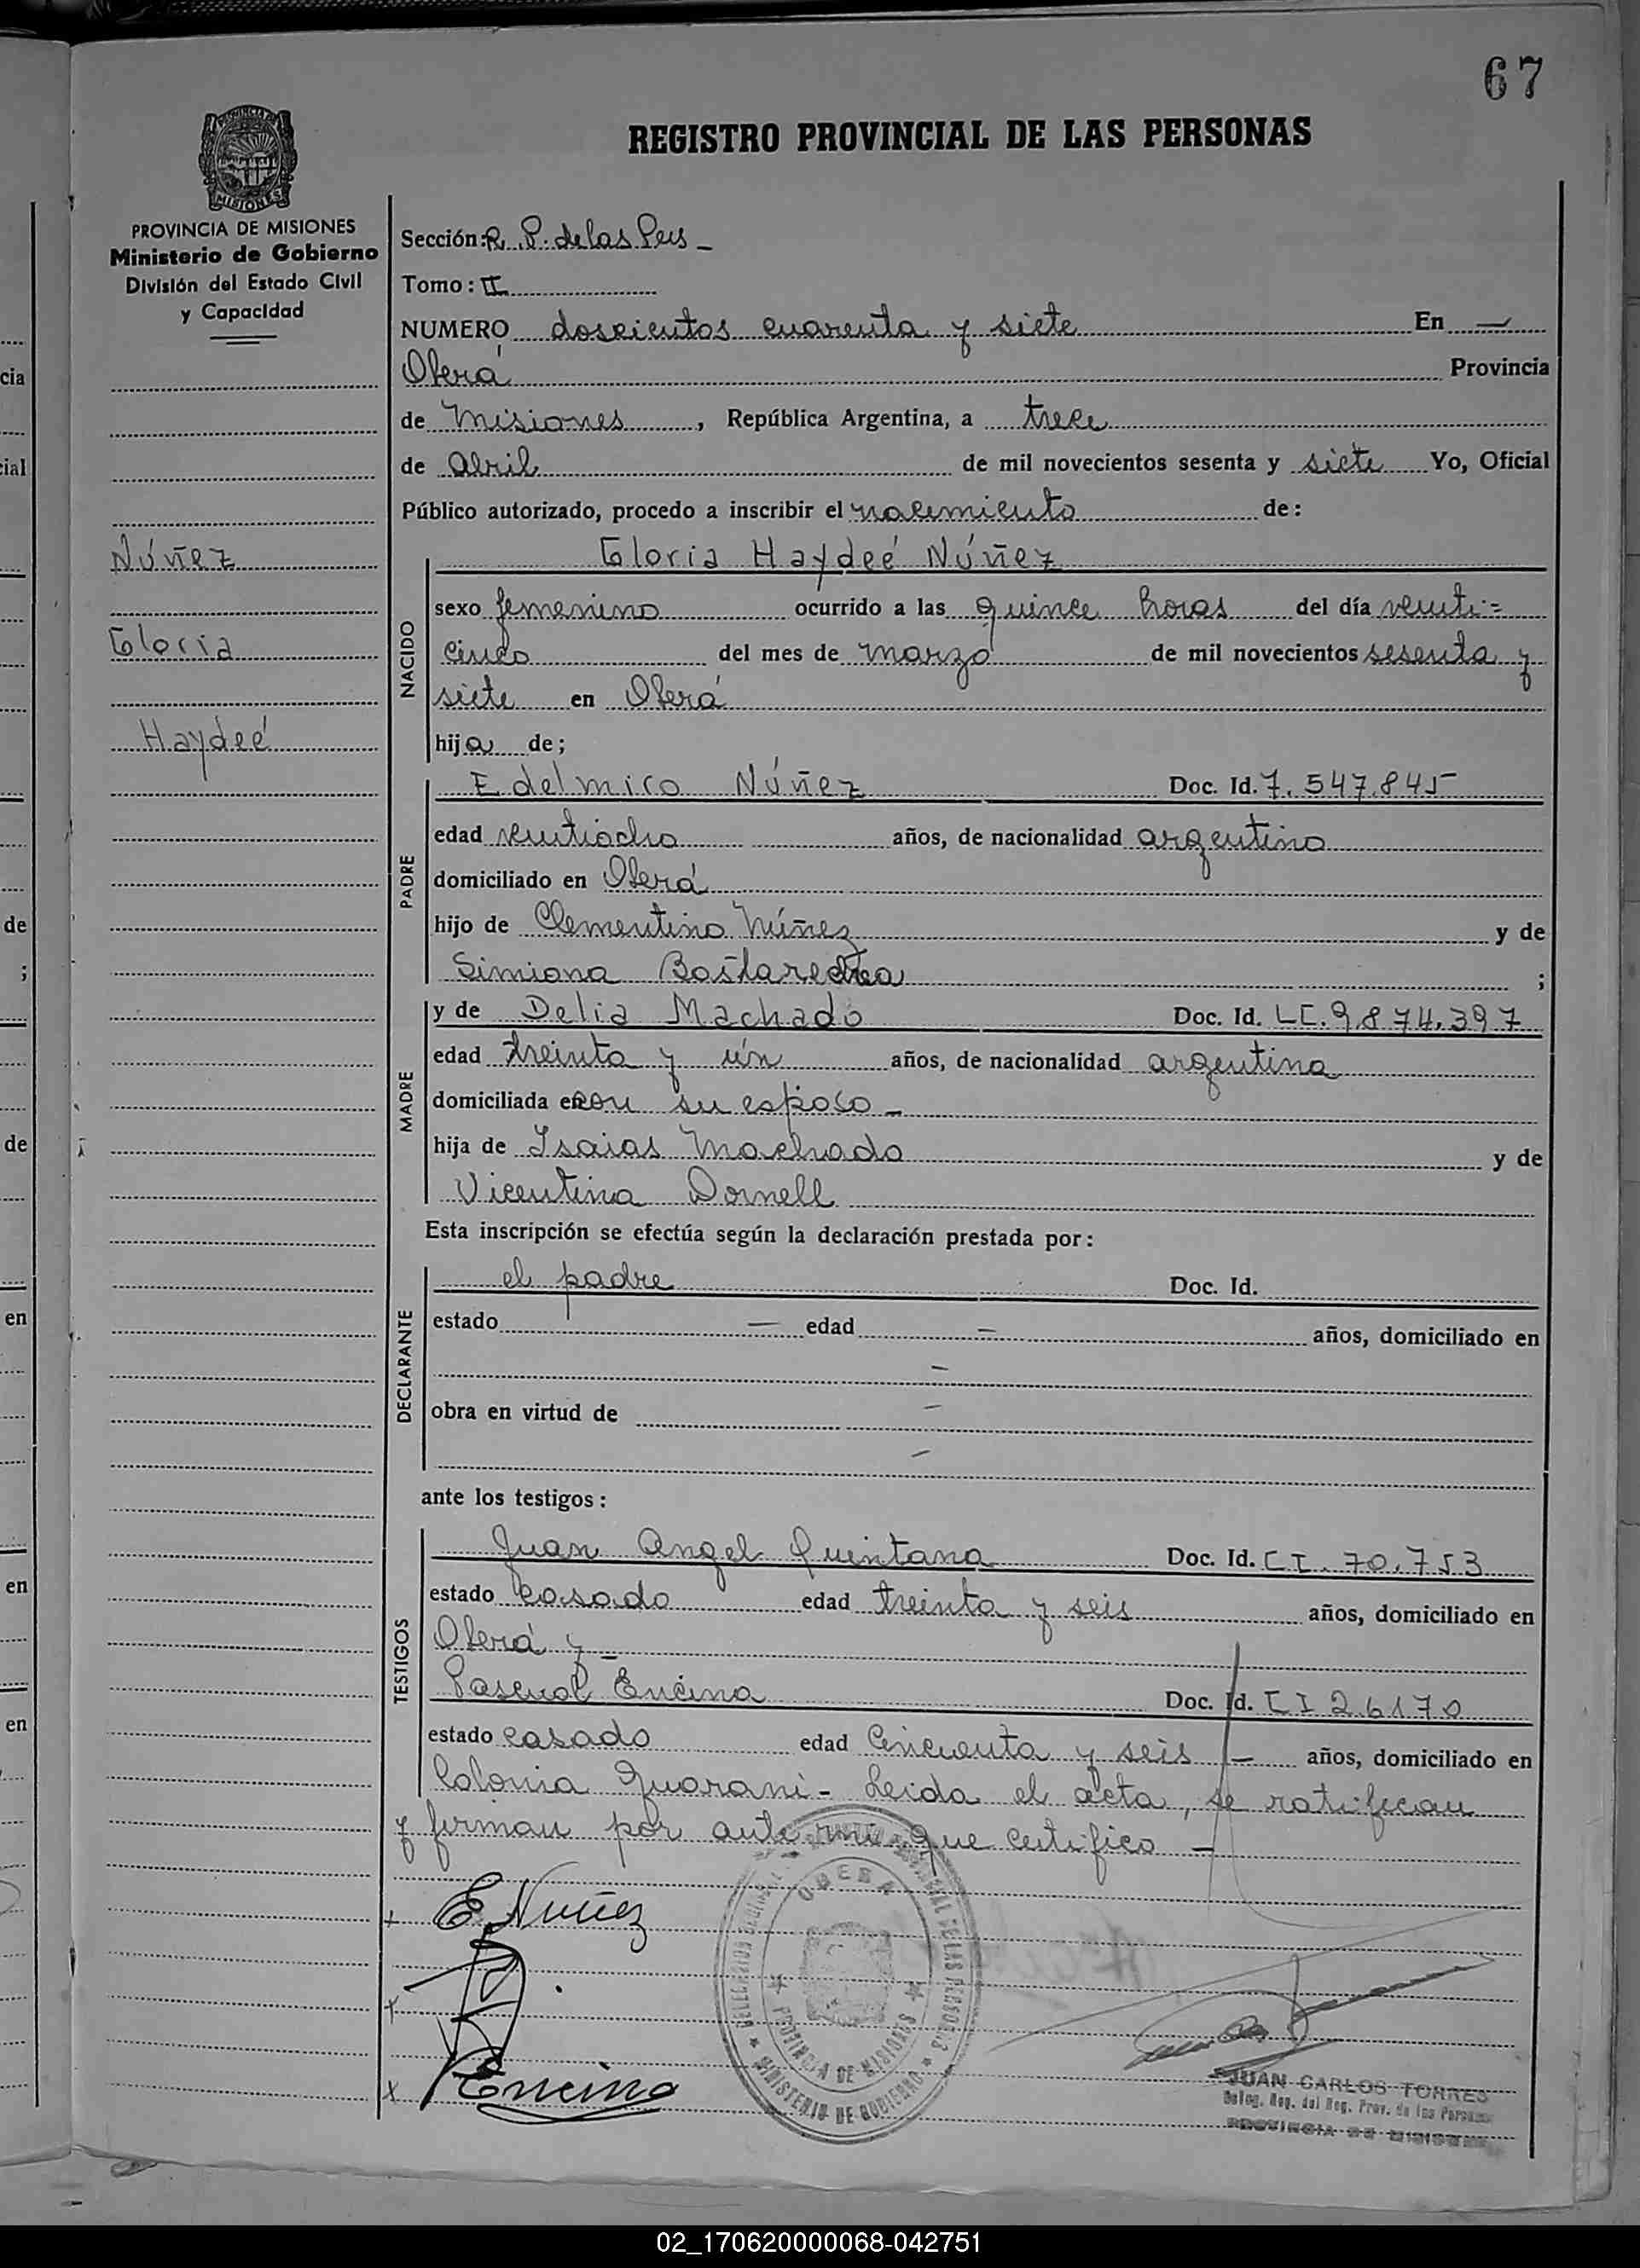 67
REGISTRO PROVINCIAL DE LAS PERSONAS
PROVINCIA DE MISIONES
Ministerio de Gobierno
División del Estado Civil
y Capacidad
Núñez
Gloria
Haydeé
Sección: R. P. de las Pers -
Tomo: II
NUMERO doscientos cuarenta y siete En —
Oberá Provincia
de Misiones, República Argentina, a trece
de Abril de mil novecientos sesenta y siete Yo, Oficial
Público autorizado, procedo a inscribir el nacimiento de:
Gloria Haydeé Núñez
NACIDO
sexo femenino ocurrido a las quince horas del día veinti=
cinco del mes de marzo de mil novecientos sesenta y
siete en Oberá
hija de;
PADRE
Edelmiro Núñez Doc. Id. 7.547.845
edad veintiocho años, de nacionalidad argentino
domiciliado en Oberá
hijo de Clementino Núñez y de
Simiona ;
MADRE
y de Delia Machado Doc. Id. LC.9874.397
edad treinta y un años, de nacionalidad argentina
domiciliada en con su esposo -
hija de Isaias Machado y de
Vicentina Dornell
Esta inscripción se efectúa según la declaración prestada por:
DECLARANTE
el padre Doc. Id.
estado — edad — años, domiciliado en
—
obra en virtud de —
—
ante los testigos:
TESTIGOS
Juan Angel Quintana Doc. Id. CI. 70.753
estado casado edad treinta y seis años, domiciliado en
Oberá y -
Pascual Encina Doc. Id. CI 26170
estado casado edad Cincuenta y seis — años, domiciliado en
Colonia Guarani - Leida el acta, se ratifican
y firman por ante mi que certifico -
E. Nuñez
Encina
OBERA
PROVINCIA DE MISIONES
MINISTERIO DE GOBIERNO
JUAN CARLOS TORRES
Deleg. Reg. del Reg. Prov. de las Personas
PROVINCIA DE MISIONES
02_170620000068-042751